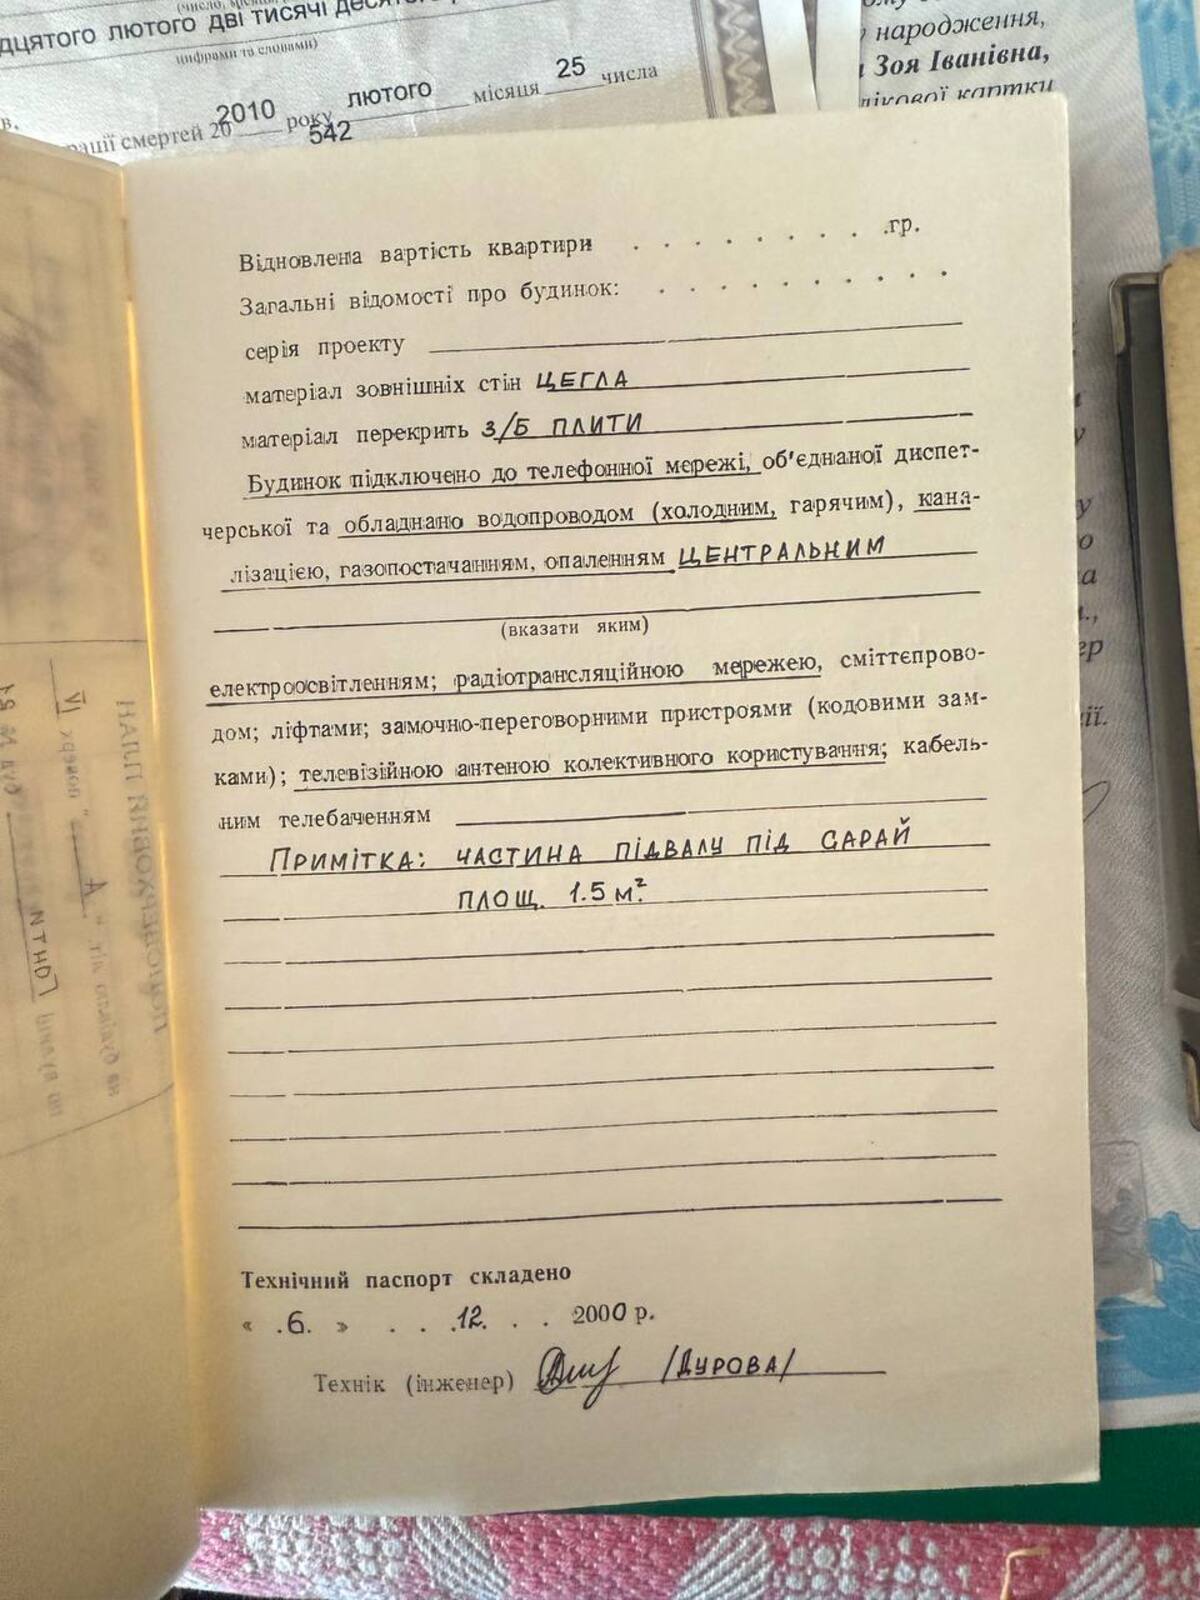 дцятого лютого дві тисячі
цифрами та словами)
рації смертей 20 2010 року лютого місяця 25 числа
542
народження,
Зоя Іванівна,
Відновлена вартість квартири . . . . . . . . . .гр.
Загальні відомості про будинок: . . . . . . . . . .
серія проекту
матеріал зовнішніх стін ЦЕГЛА
матеріал перекрить З/Б ПЛИТИ
Будинок підключено до телефонної мережі, об'єднаної диспет-
черської та обладнано водопроводом (холодним, гарячим), кана-
лізацією, газопостачанням, опаленням ЦЕНТРАЛЬНИМ
(вказати яким)
електроосвітленням; радіотрансляційною мережею, сміттєпрово-
дом; ліфтами; замочно-переговорними пристроями (кодовими зам-
ками); телевізійною антеною колективного користування; кабель-
ним телебаченням
ПРИМІТКА: ЧАСТИНА ПІДВАЛУ ПІД САРАЙ
ПЛОЩ. 1.5 м².
Технічний паспорт складено
« .6. » . . .12. . . 2000 р.
Технік (інженер) /ДУРОВА/